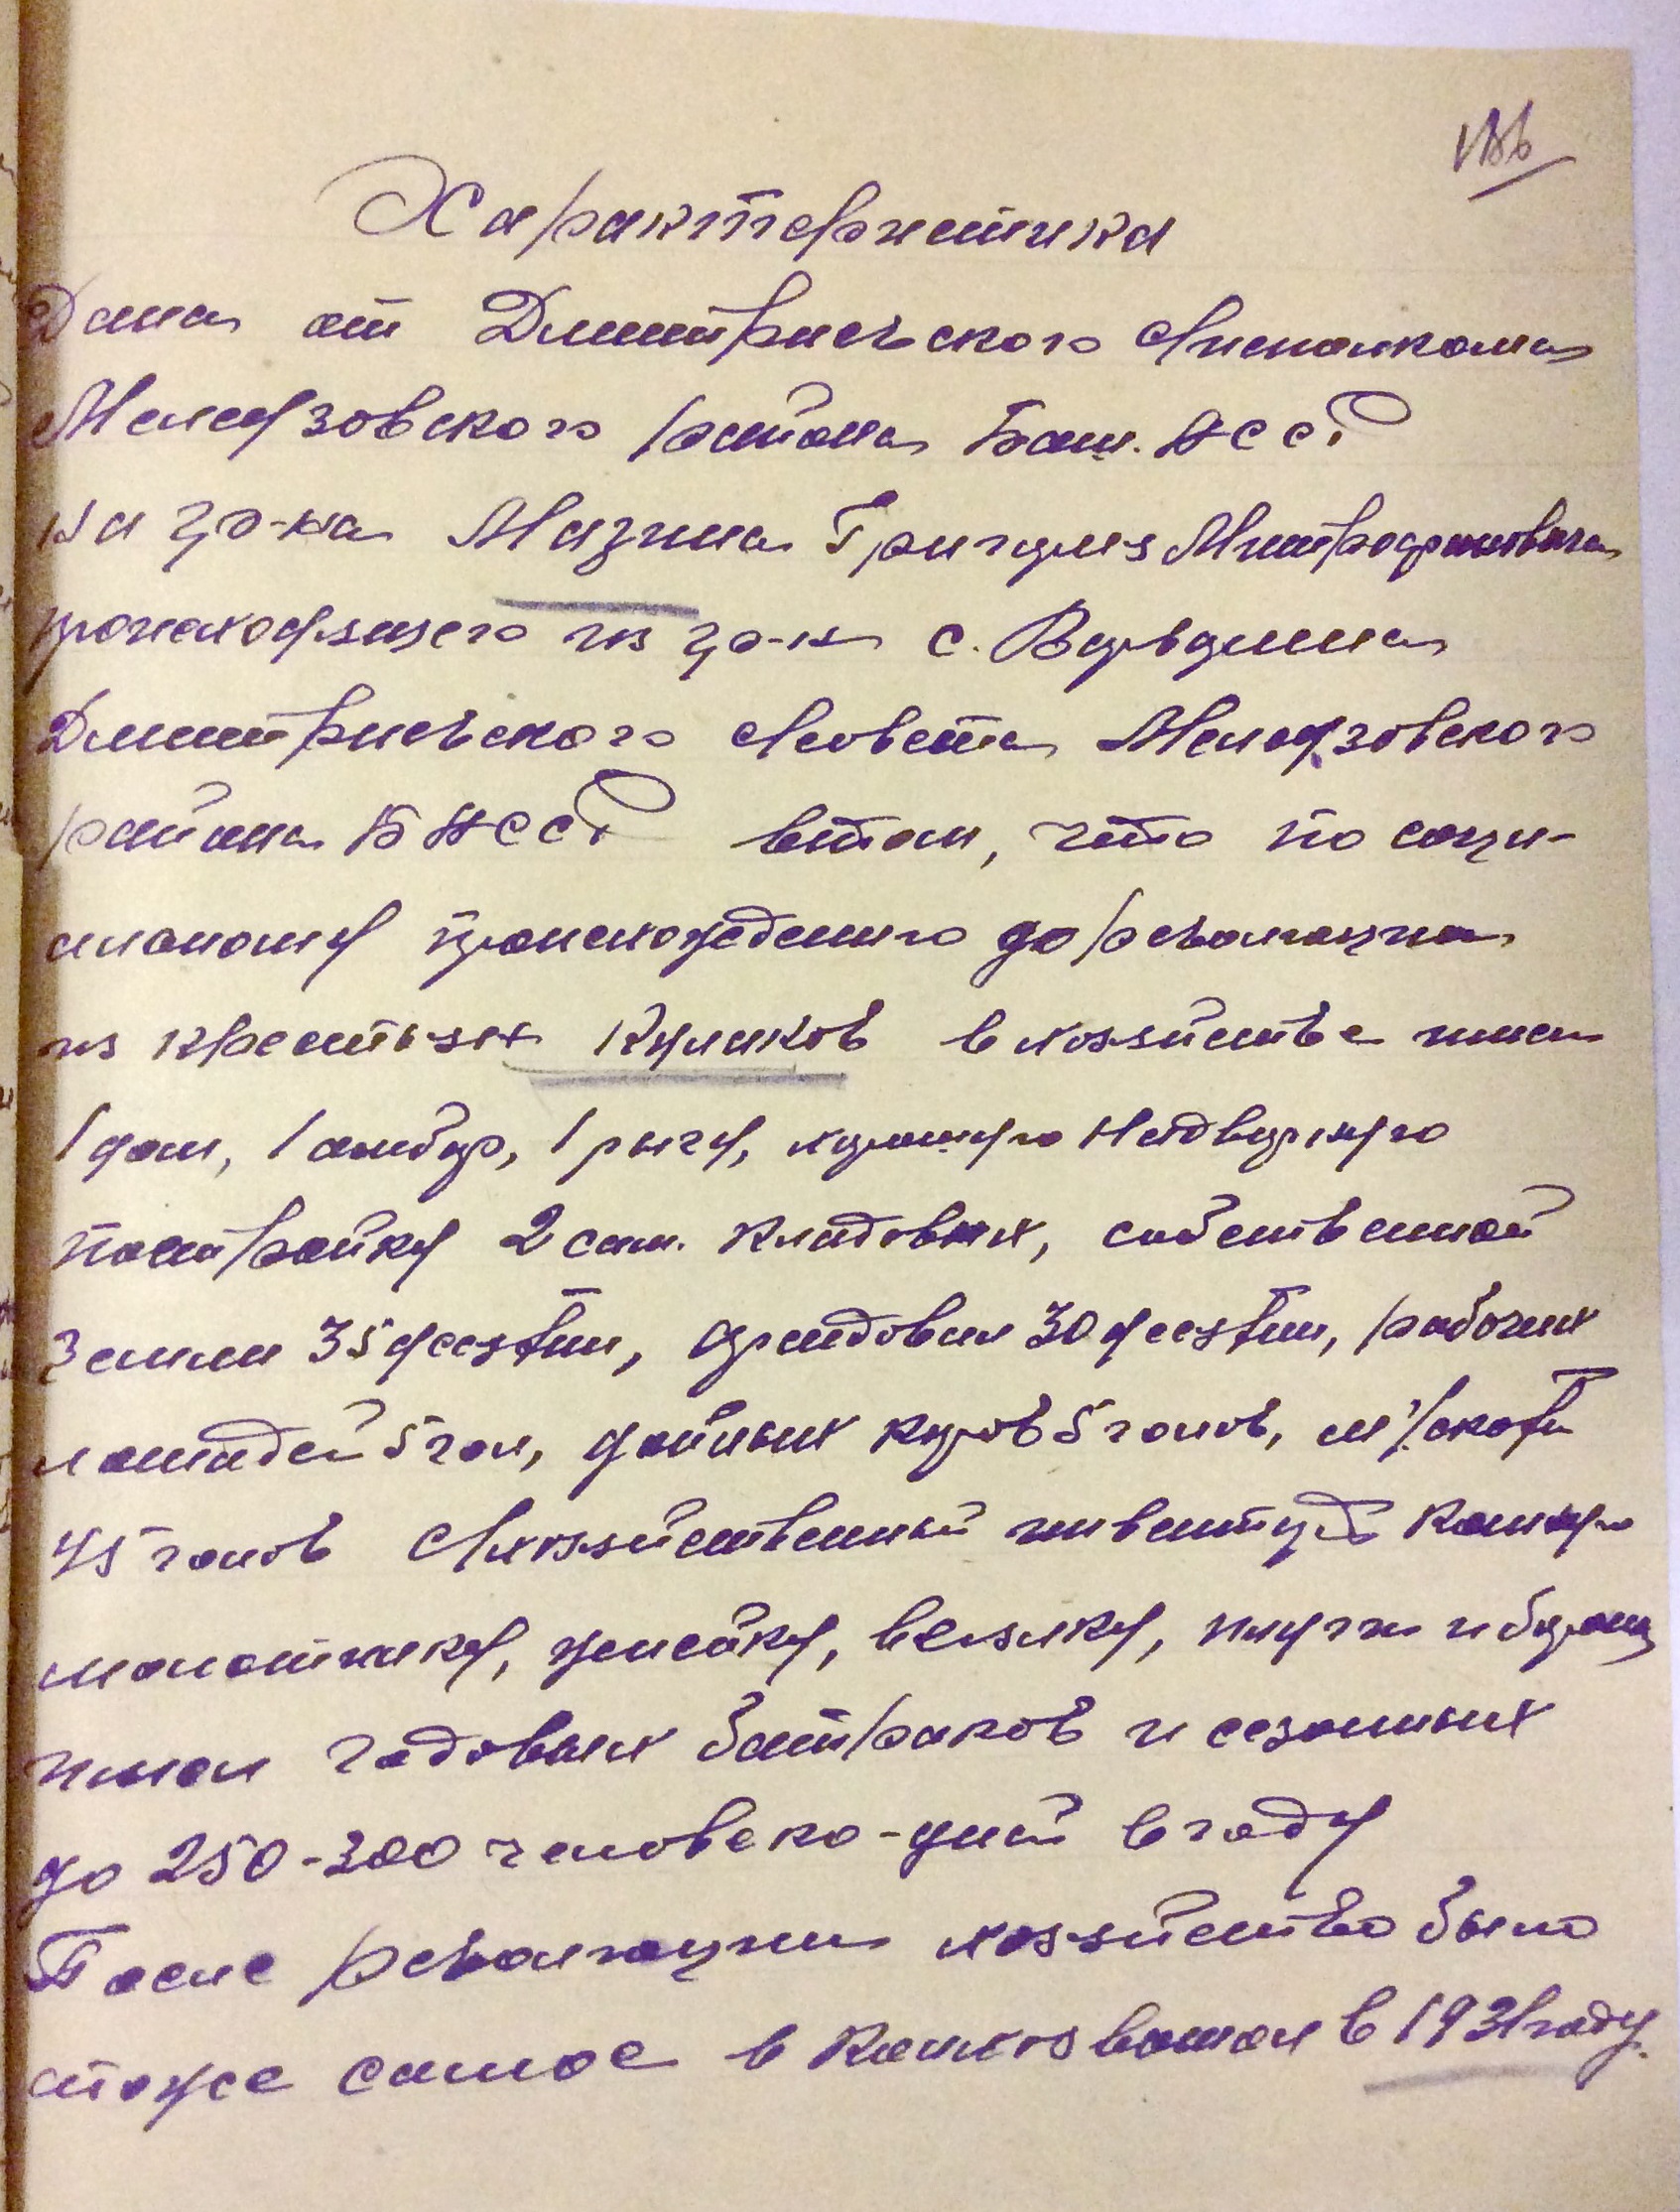 186
Характеристика
Дана от Дмитриевского С/исполкома
Мелеузовского района Баш. АССР
на гр-на Мазина Григория Митрофановича
происходящего из гр-н с. Варварина
Дмитриевского С/совета Мелеузовского
района БАССР втом, что по соци-
альному происхождению до революции
из крестьян кулаков в хозяйстве имел
1 дом, 1 амбар, 1 ригу, хорошую надворную
постройку 2 сам. кладовых, собственной
земли 35 десятин, арендовал 30 десятин, рабочих
лошадей 5 гол, дойных коров 5 голов, м/скота
45 голов С/хозяйственный инвентарь конную
молотилку, жнейку, веялку, плуги и борон
имел годовых батраков и сезонных
до 250-300 человеко-дней в году
После революции хозяйство было
тоже самое в колхоз вошол в 1931 году.